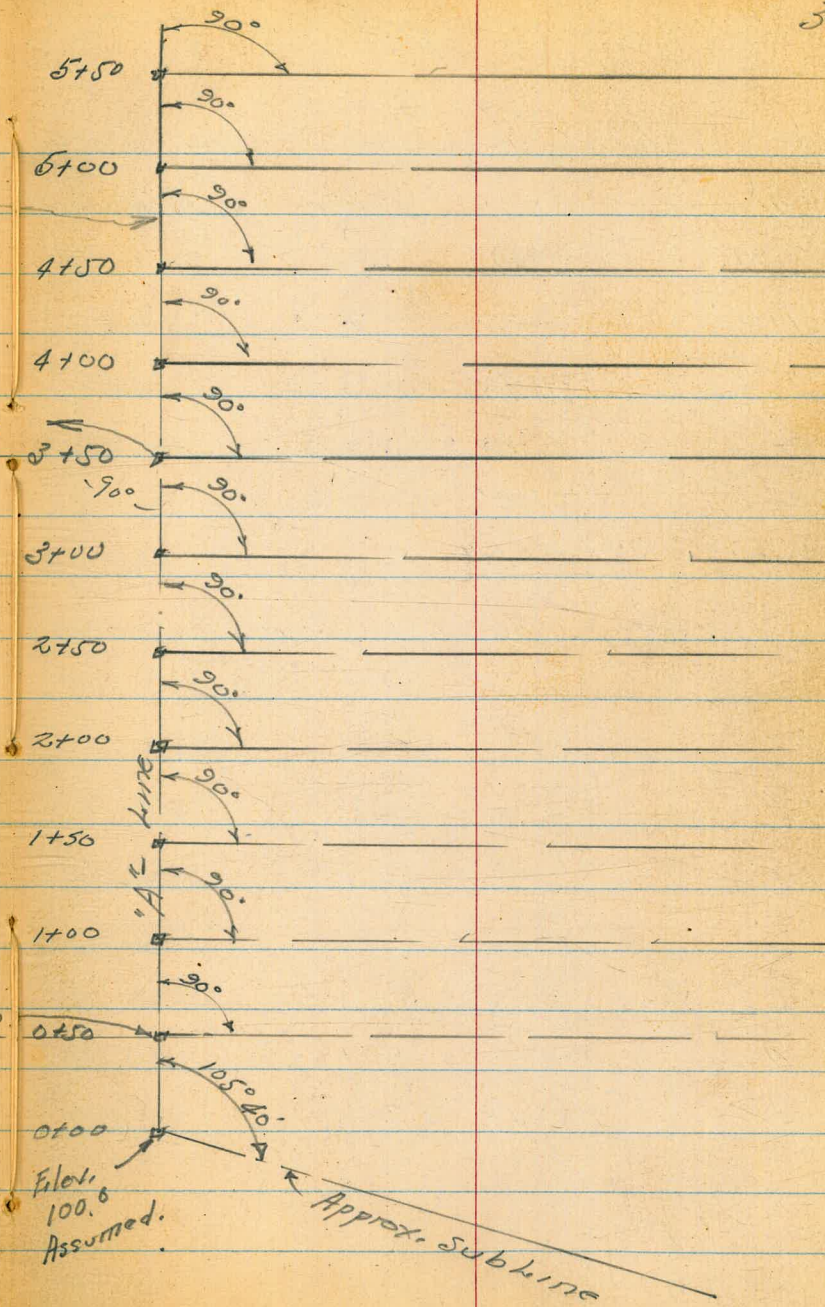 3
90°
5+50
90°
5+00
90°
4+50
90°
4+00
90°
3+50
90°
90°
3+00
90°
2+50
90°
2+00
90°
1+50
"A" Line
90°
1+00
90°
0+50
105° 40'
0+00
Elev.
100.0
Assumed.
Approx. Sub Line